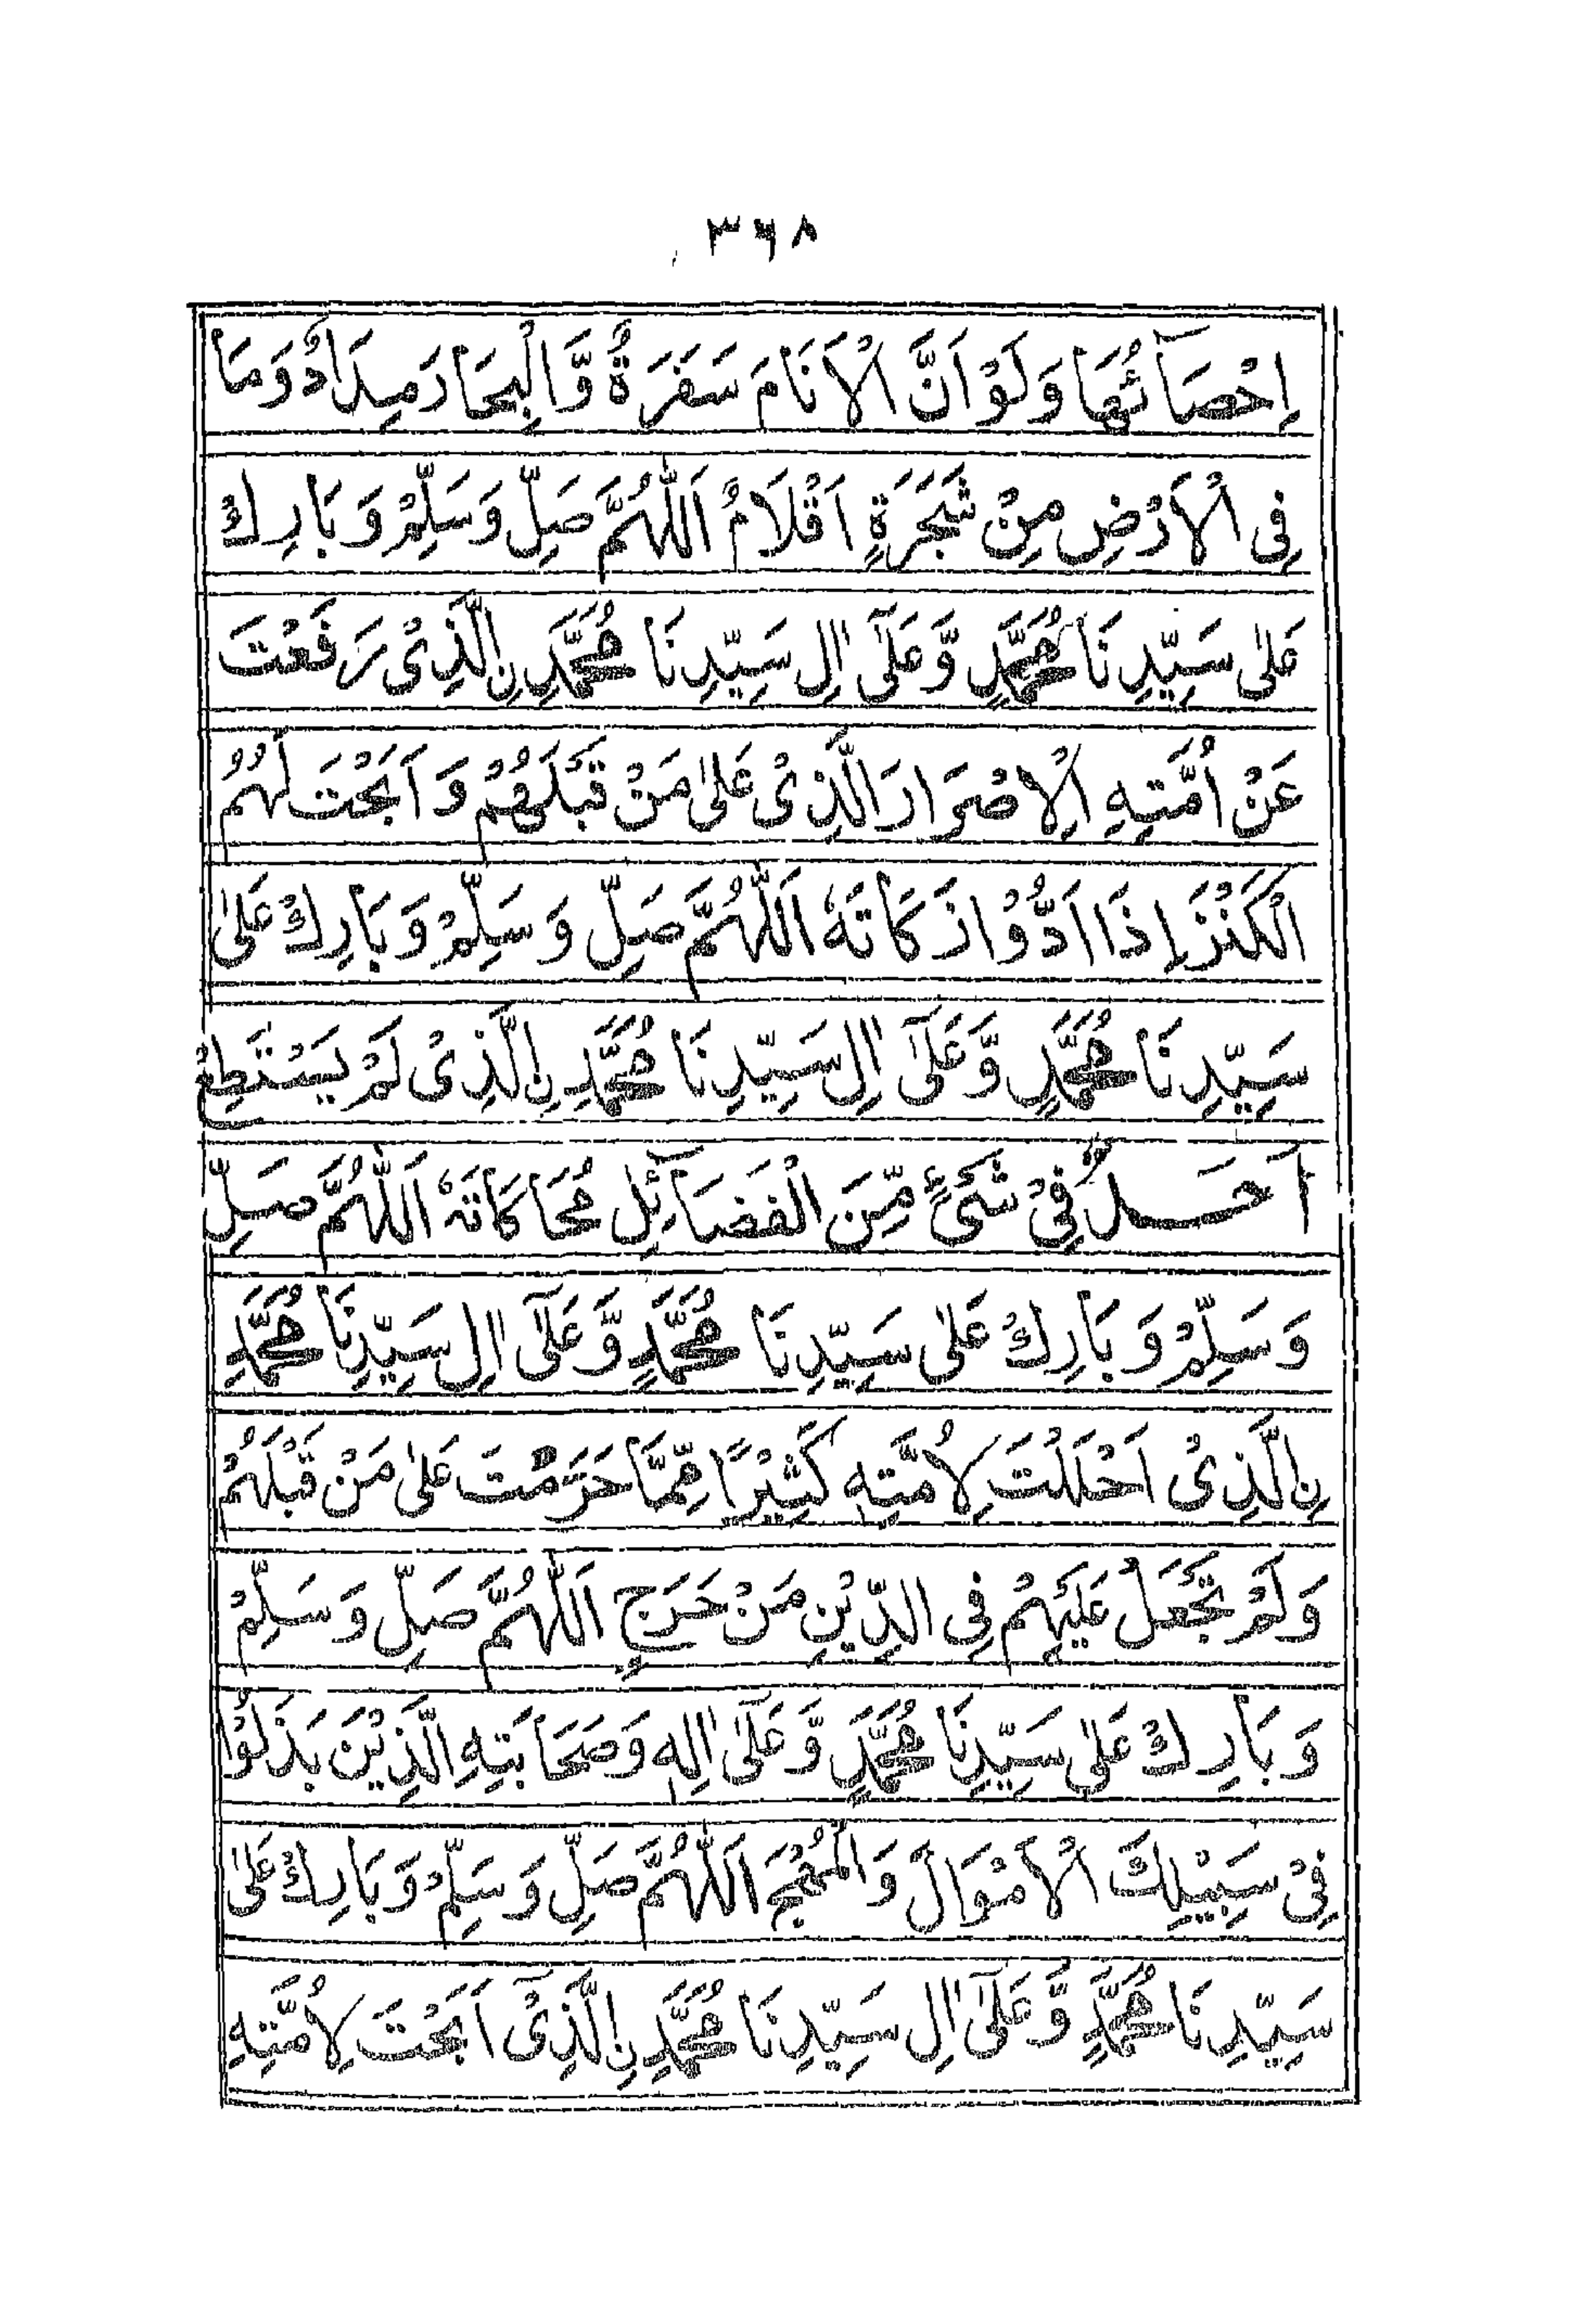 ٣٦٨
اِحْصَآئُهَا وَلَوْ اَنَّ الْاَنَامَ سَفَرَةٌ وَّالْبِحَارَ مِدَادٌ وَمَا
فِى الْاَرْضِ مِنْ شَجَرَةٍ اَقْلَامٌ اَللّٰهُمَّ صَلِّ وَسَلِّمْ وَبَارِكْ
عَلٰى سَيِّدِنَا مُحَمَّدٍ وَّعَلٰٓى اٰلِ سَيِّدِنَا مُحَمَّدِ نِ الَّذِىْ رَفَعْتَ
عَنْ اُمَّتِهِ الْاِصْرَارَ الَّذِىْ عَلٰى مَنْ قَبْلَهُمْ وَ اَبَحْتَ لَهُمُ
الْكَنْزَ اِذَا اَدُّوْا زَكَاتَهٗ اَللّٰهُمَّ صَلِّ وَ سَلِّمْ وَ بَارِكْ عَلٰى
سَيِّدِنَا مُحَمَّدٍ وَّعَلٰٓى اٰلِ سَيِّدِنَا مُحَمَّدِ نِ الَّذِىْ لَمْ يَسْتَطِعْ
اَحَدٌ فِىْ شَىْءٍ مِّنَ الْفَضَآئِلِ مُحَاكَاتَهٗ اَللّٰهُمَّ صَلِّ
وَسَلِّمْ وَ بَارِكْ عَلٰى سَيِّدِنَا مُحَمَّدٍ وَّعَلٰٓى اٰلِ سَيِّدِنَا مُحَمَّدِ
نِ الَّذِىْ اَحْلَلْتَ لِاُمَّتِهٖ كَثِيْرًا مِّمَّا حَرَّمْتَ عَلٰى مَنْ قَبْلَهُمْ
وَلَمْ تَجْعَلْ عَلَيْهِمْ فِى الدِّيْنِ مَنْ حَرَجٍ اَللّٰهُمَّ صَلِّ وَ سَلِّمْ
وَ بَارِكْ عَلٰى سَيِّدِنَا مُحَمَّدٍ وَّعَلٰٓى اٰلِهٖ وَصَحَابَتِهِ الَّذِيْنَ بَذَلُوْا
فِىْ سَبِيْلِكَ الْاَمْوَالَ وَالْمُهْجَ اَللّٰهُمَّ صَلِّ وَ سَلِّمْ وَ بَارِكْ عَلٰى
سَيِّدِنَا مُحَمَّدٍ وَّعَلٰٓى اٰلِ سَيِّدِنَا مُحَمَّدِ نِ الَّذِىْٓ اَبَحْتَ لِاُمَّتِهِ